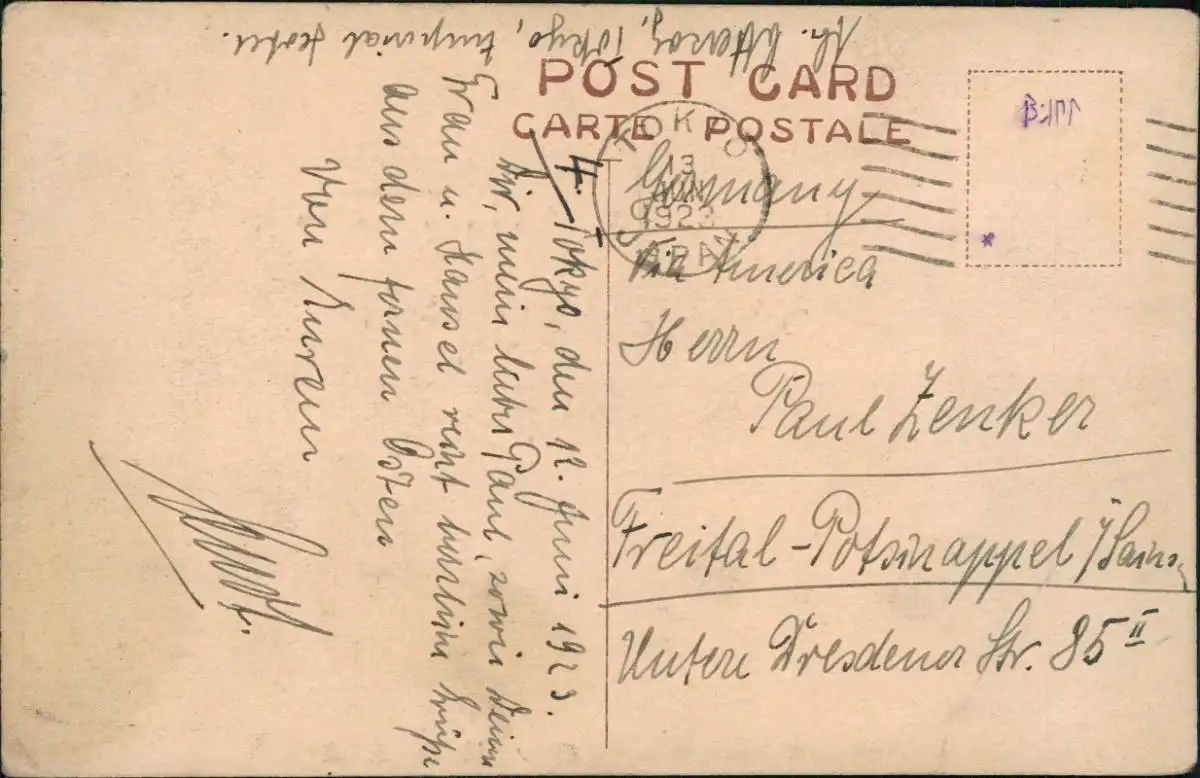 POST CARD
CARTE POSTALE
TOKYO
13
1923
JAPAN
Germany
via America
Herrn
Paul Zenker
Freital-Potschappel
Untere Dresdener Str. 85 II
4. Tokyo, den 12. Juni 1923.
Dir, mein lieber Paul, sowie Deiner
Frau u. Hansel recht herzliche Grüße
aus dem fernen Osten
von Eurem
Tokyo, Imperial Hotel.